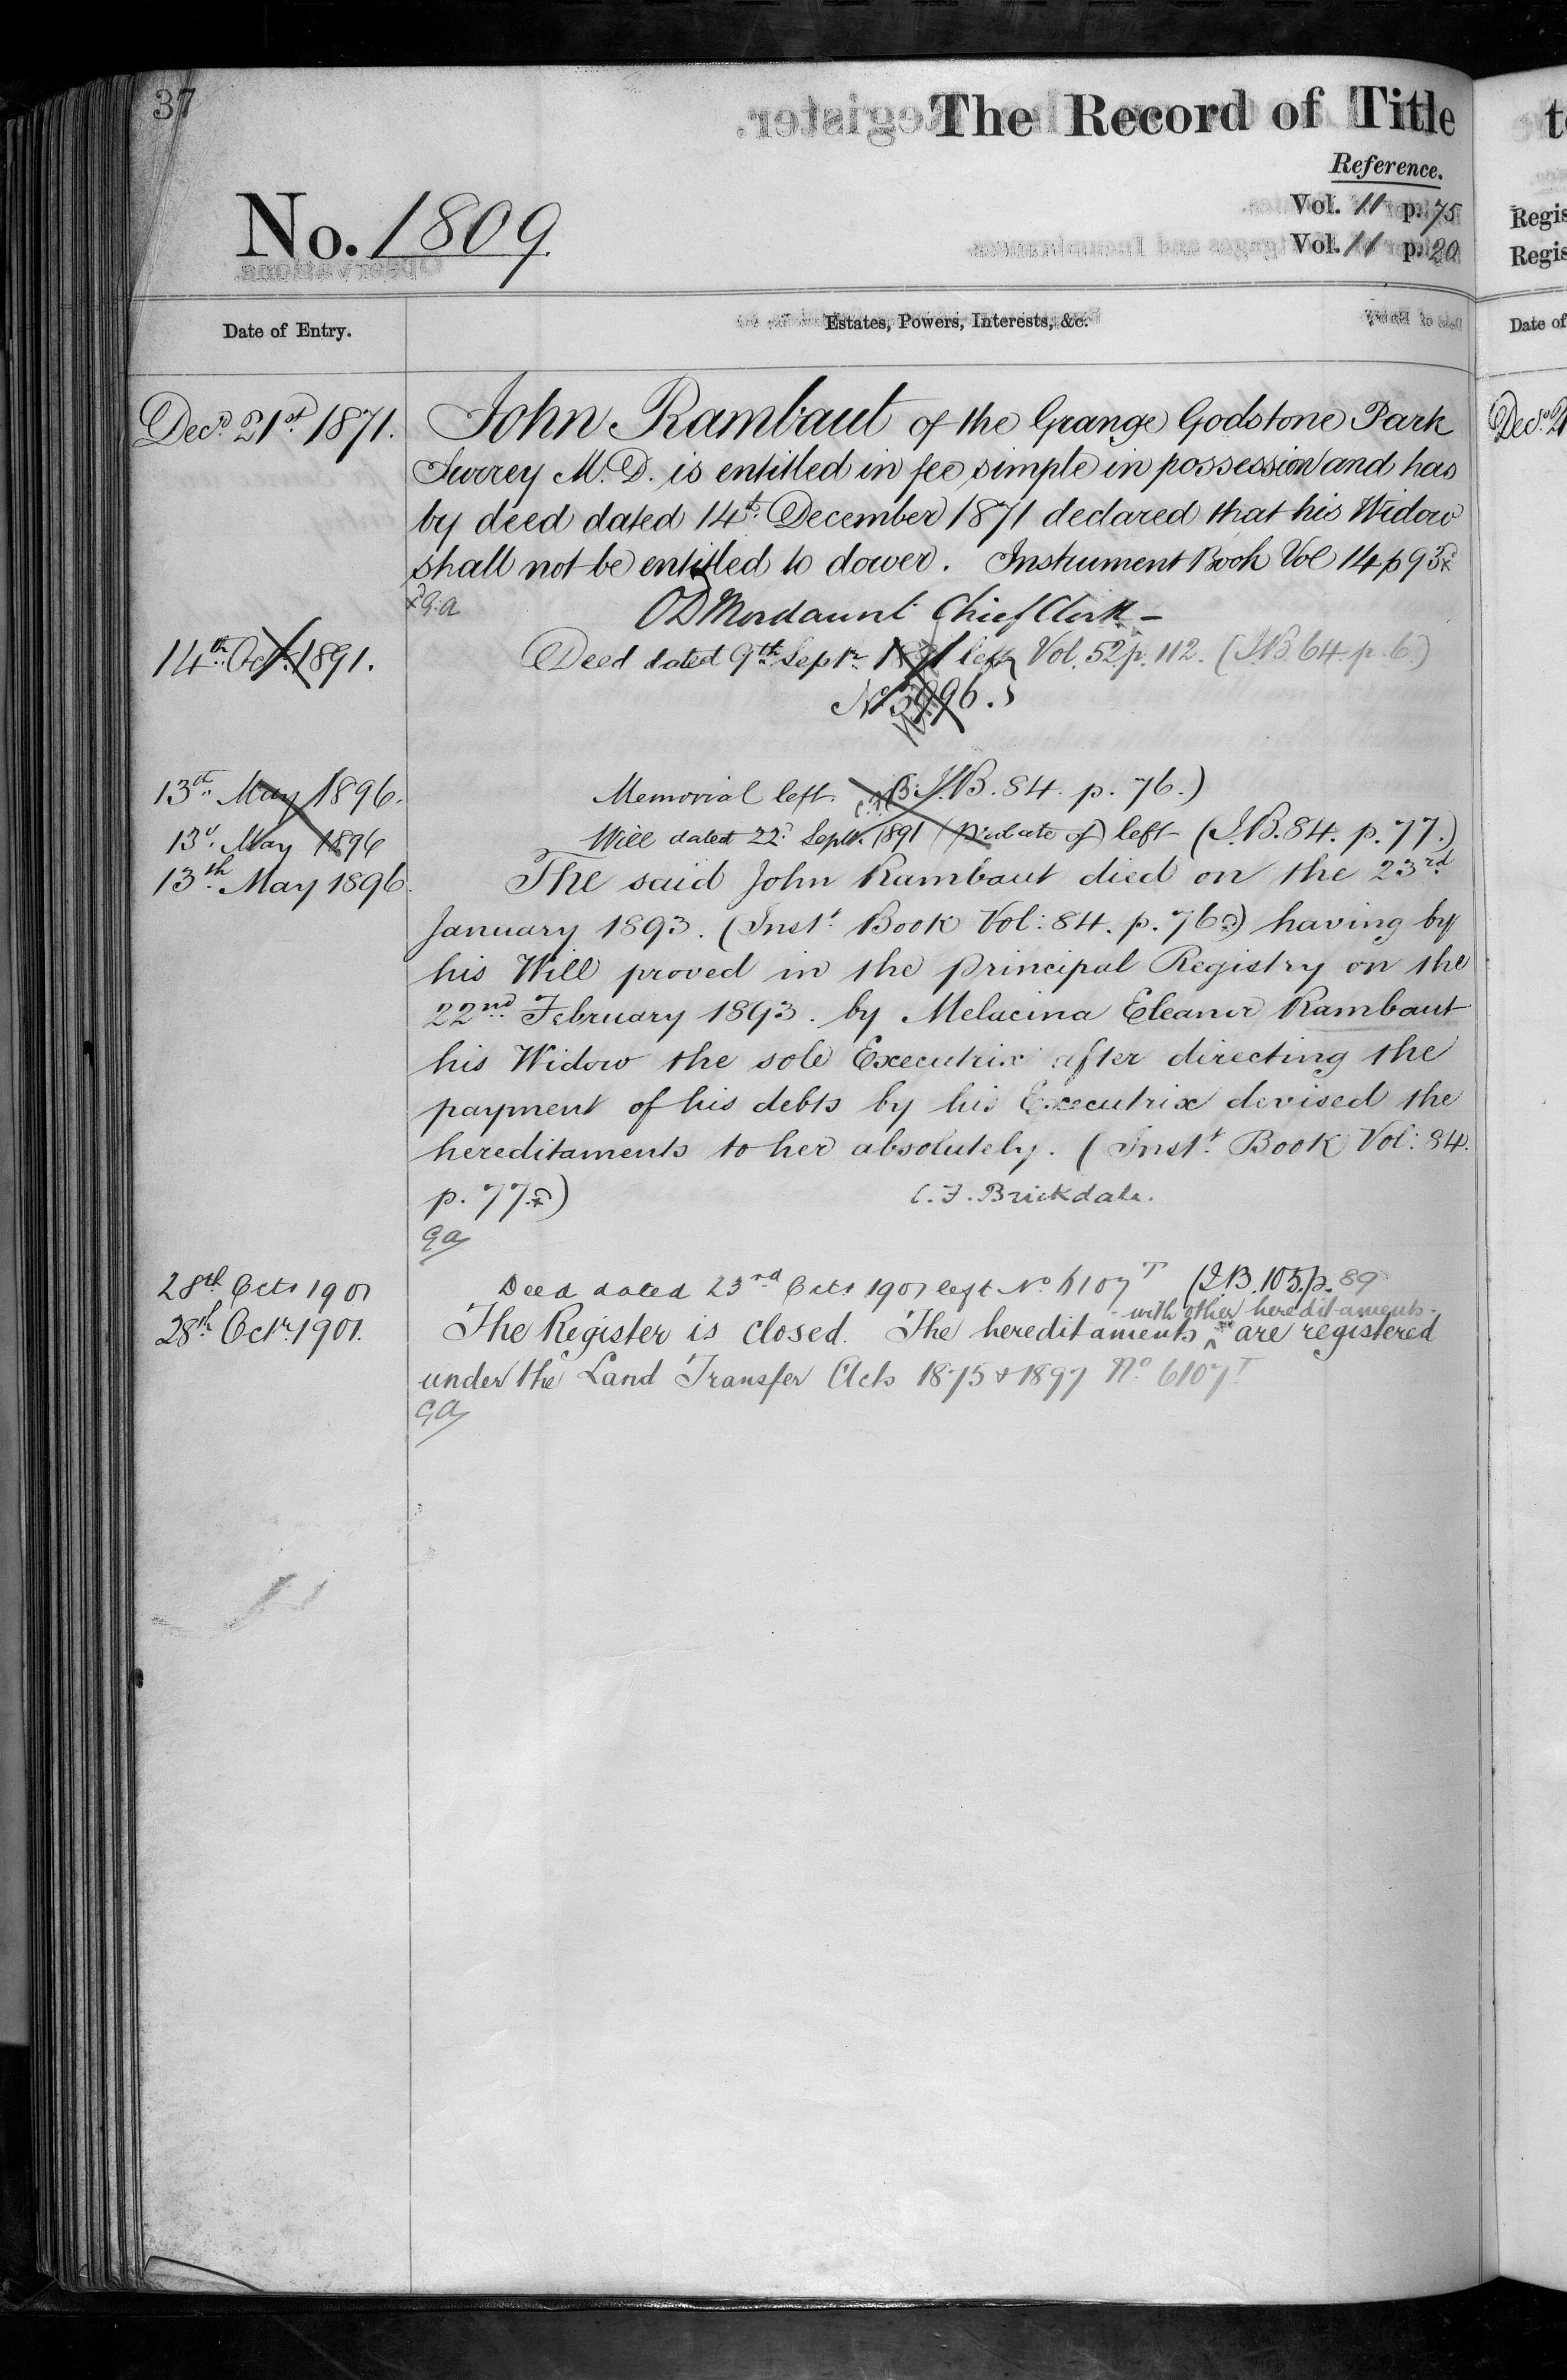 37
The Record of Title
Reference.
Vol. 11 p. 75
Vol. 11 p. 20
No. 1809.
Date of Entry.
Estates, Powers, Interests, &c.
Decr 21st 1871.
John Rambaut of the Grange Godstone Park
Surrey M.D. is entitled in fee simple in possession and has
by deed dated 14th December 1871 declared that his Widow
shall not be entitled to dower. Instrument Book Vol 14 p 93
G.A
Mordaunt Chief Clerk –
14th Octr 1891.
Deed dated 9th Septr 1891 left Vol. 52 p. 112. (I.B. 64. p. 6.)
No 3996.
13th May 1896.
Memorial left. (I.B. 84. p. 76.)
13th May 1896
Will dated 22d Septr. 1891 (Probate of) left (I.B. 84. p. 77.)
13th May 1896.
The said John Rambaut died on the 23rd
January 1893. (Instt Book Vol: 84. p. 76) having by
his Will proved in the Principal Registry on the
22nd February 1893. by Melacina Eleanor Rambaut
his Widow the sole Executrix after directing the
payment of his debts by his Executrix devised the
hereditaments to her absolutely. (Instt Book Vol: 84.
p. 77.)
C. F. Brickdale.
GA
28th Octr 1901
Deed dated 23rd Octr 1901 left No 6107T (I.B. 105. p. 89
28th Octr. 1901.
- with other hereditaments -
The Register is closed. The hereditaments ^ are registered
under the Land Transfer Acts 1875 & 1897 No 6107T
GA
to
Regis
Regis
Date of
Decr 2